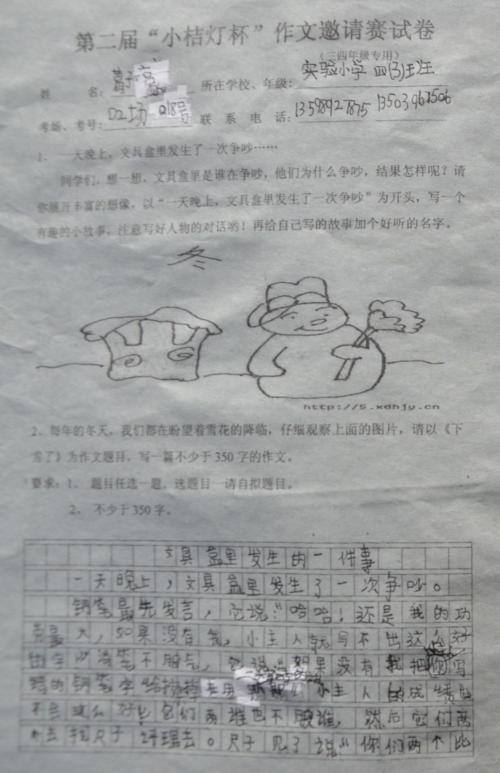 第二届“小桔灯杯”作文邀请赛试卷
（三四年级专用）
姓 名： 所在学校、年级：实验小学 四(3)班
考场、考号：02场 018号 联 系 电 话：13598927875 13503967506
1、 一天晚上，文具盒里发生了一次争吵……
同学们，想一想，文具盒里是谁在争吵，他们为什么争吵，结果怎样呢？请
你展开丰富的想像，以“一天晚上，文具盒里发生了一次争吵”为开头，写一个
有趣的小故事，注意写好人物的对话哟！再给自己写的故事加个好听的名字。
冬
http://5.xdhjy.cn
2、每年的冬天，我们都在盼望着雪花的降临，仔细观察上面的图片，请以《下
雪了》为作文题目，写一篇不少于350字的作文。
要求：1、 题目任选一题，选题目一请自拟题目。
2、 不少于350字。
文具盒里发生的一件事
一天晚上，文具盒里发生了一次争吵。
钢笔最先发言，它说：“哈哈！还是我的功
大，如果没有我，小主人就写不出这 好
的字”铅笔不服气，它说：“如果没有我把 写
错的钢笔字 小主人的成绩也
不会这么好”它们两谁也不服谁，然后它们两
个去找尺子评理去。尺子见了说“你们两个比